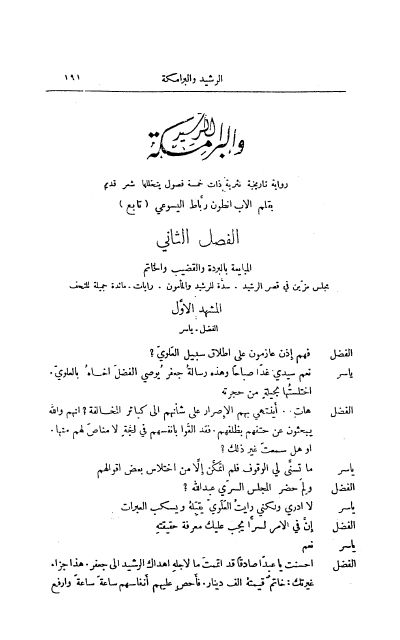 الرشيد والبرامكة ١٩١
الرشيد
والبرامكة
رواية تاريخية نثرية ذات خمسة فصول يتخللها شعر قديم
بقلم الاب انطون رباط اليسوعي ( تابع )
الفصل الثاني
المبايعة بالبردة والقضيب والخاتم
مجلس مزين في قصر الرشيد . سدة للرشيد والمأمون . رايات . مائدة جميلة للتحف
المشهد الأول
الفضل . ياسر
الفضل فهم إذن عازمون على اطلاق سبيل العلوي ؟
ياسر نعم سيدي غدًا صباحًا وهذه رسالة جعفر يُوصي الفضلَ اخاه بالعلويّ.
اختلستُها بحيلةٍ من حجرته
الفضل هاتِ . . أينتهي بهم الإصرار على شأنهم الى كبائر المخالفة ؟ انهم والله
يبحثون عن حتفهم بظلفهم . فقد القوا بانفسهم في لجَّةٍ لا مناص لهم منها .
او هل سمعتَ غير ذلك ؟
ياسر ما تسنَّى لي الوقوف فلم اتمكَّن إلَّا من اختلاس بعض اقوالهم
الفضل ولمَ حضر المجلس السرّي عبدالله ؟
ياسر لا ادري ولكنني رايتُ العلويَّ يقبّله ويسكب العبرات
الفضل إنَّ في الامر لسرًّا يجب عليك معرفة حقيقته
ياسر نعم
الفضل احسنت يا عبدًا صادقًا قد اتممتَ ما لاجله اهداك الرشيد الى جعفر . هذا جزاء
غيرتك : خاتمٌ قيمتهُ الف دينار . فأحصِ عليهم أنفاسهم ساعةً ساعةً وارفع